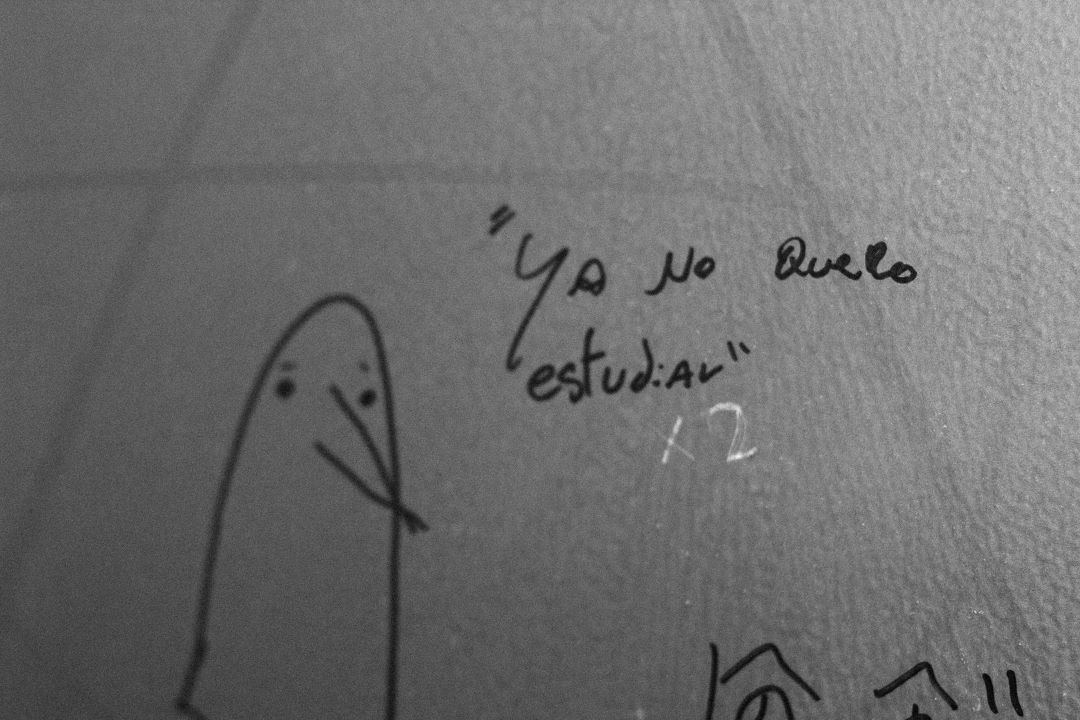 "YA No Quero
estudiAr"
x2